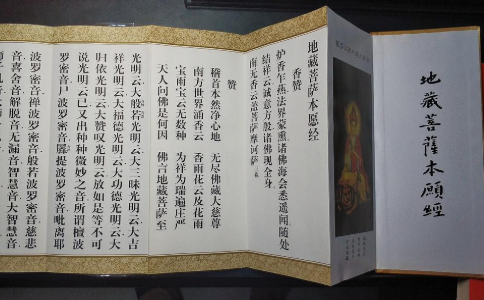 地藏菩薩本願經
地藏菩萨本愿经
香赞
炉香乍爇法界蒙熏诸佛海会悉遥闻随处
结祥云诚意方殷诸佛现全身
南无香云盖菩萨摩诃萨
赞
稽首本然净心地 无尽佛藏大慈尊
南方世界涌香云 香雨花云及花雨
宝雨宝云无数种 为祥为瑞遍庄严
天人问佛是何因 佛言地藏菩萨至
光明云大般若光明云大三昧光明云大吉
祥光明云大福德光明云大功德光明云大
归依光明云大赞叹光明云放如是等不可
说光明云已又出种种微妙之音所谓檀波
罗密音尸波罗密音羼提波罗密音毗离耶
波罗密音禅波罗密音般若波罗密音慈悲
音喜舍音解脱音无漏音智慧音大智慧音